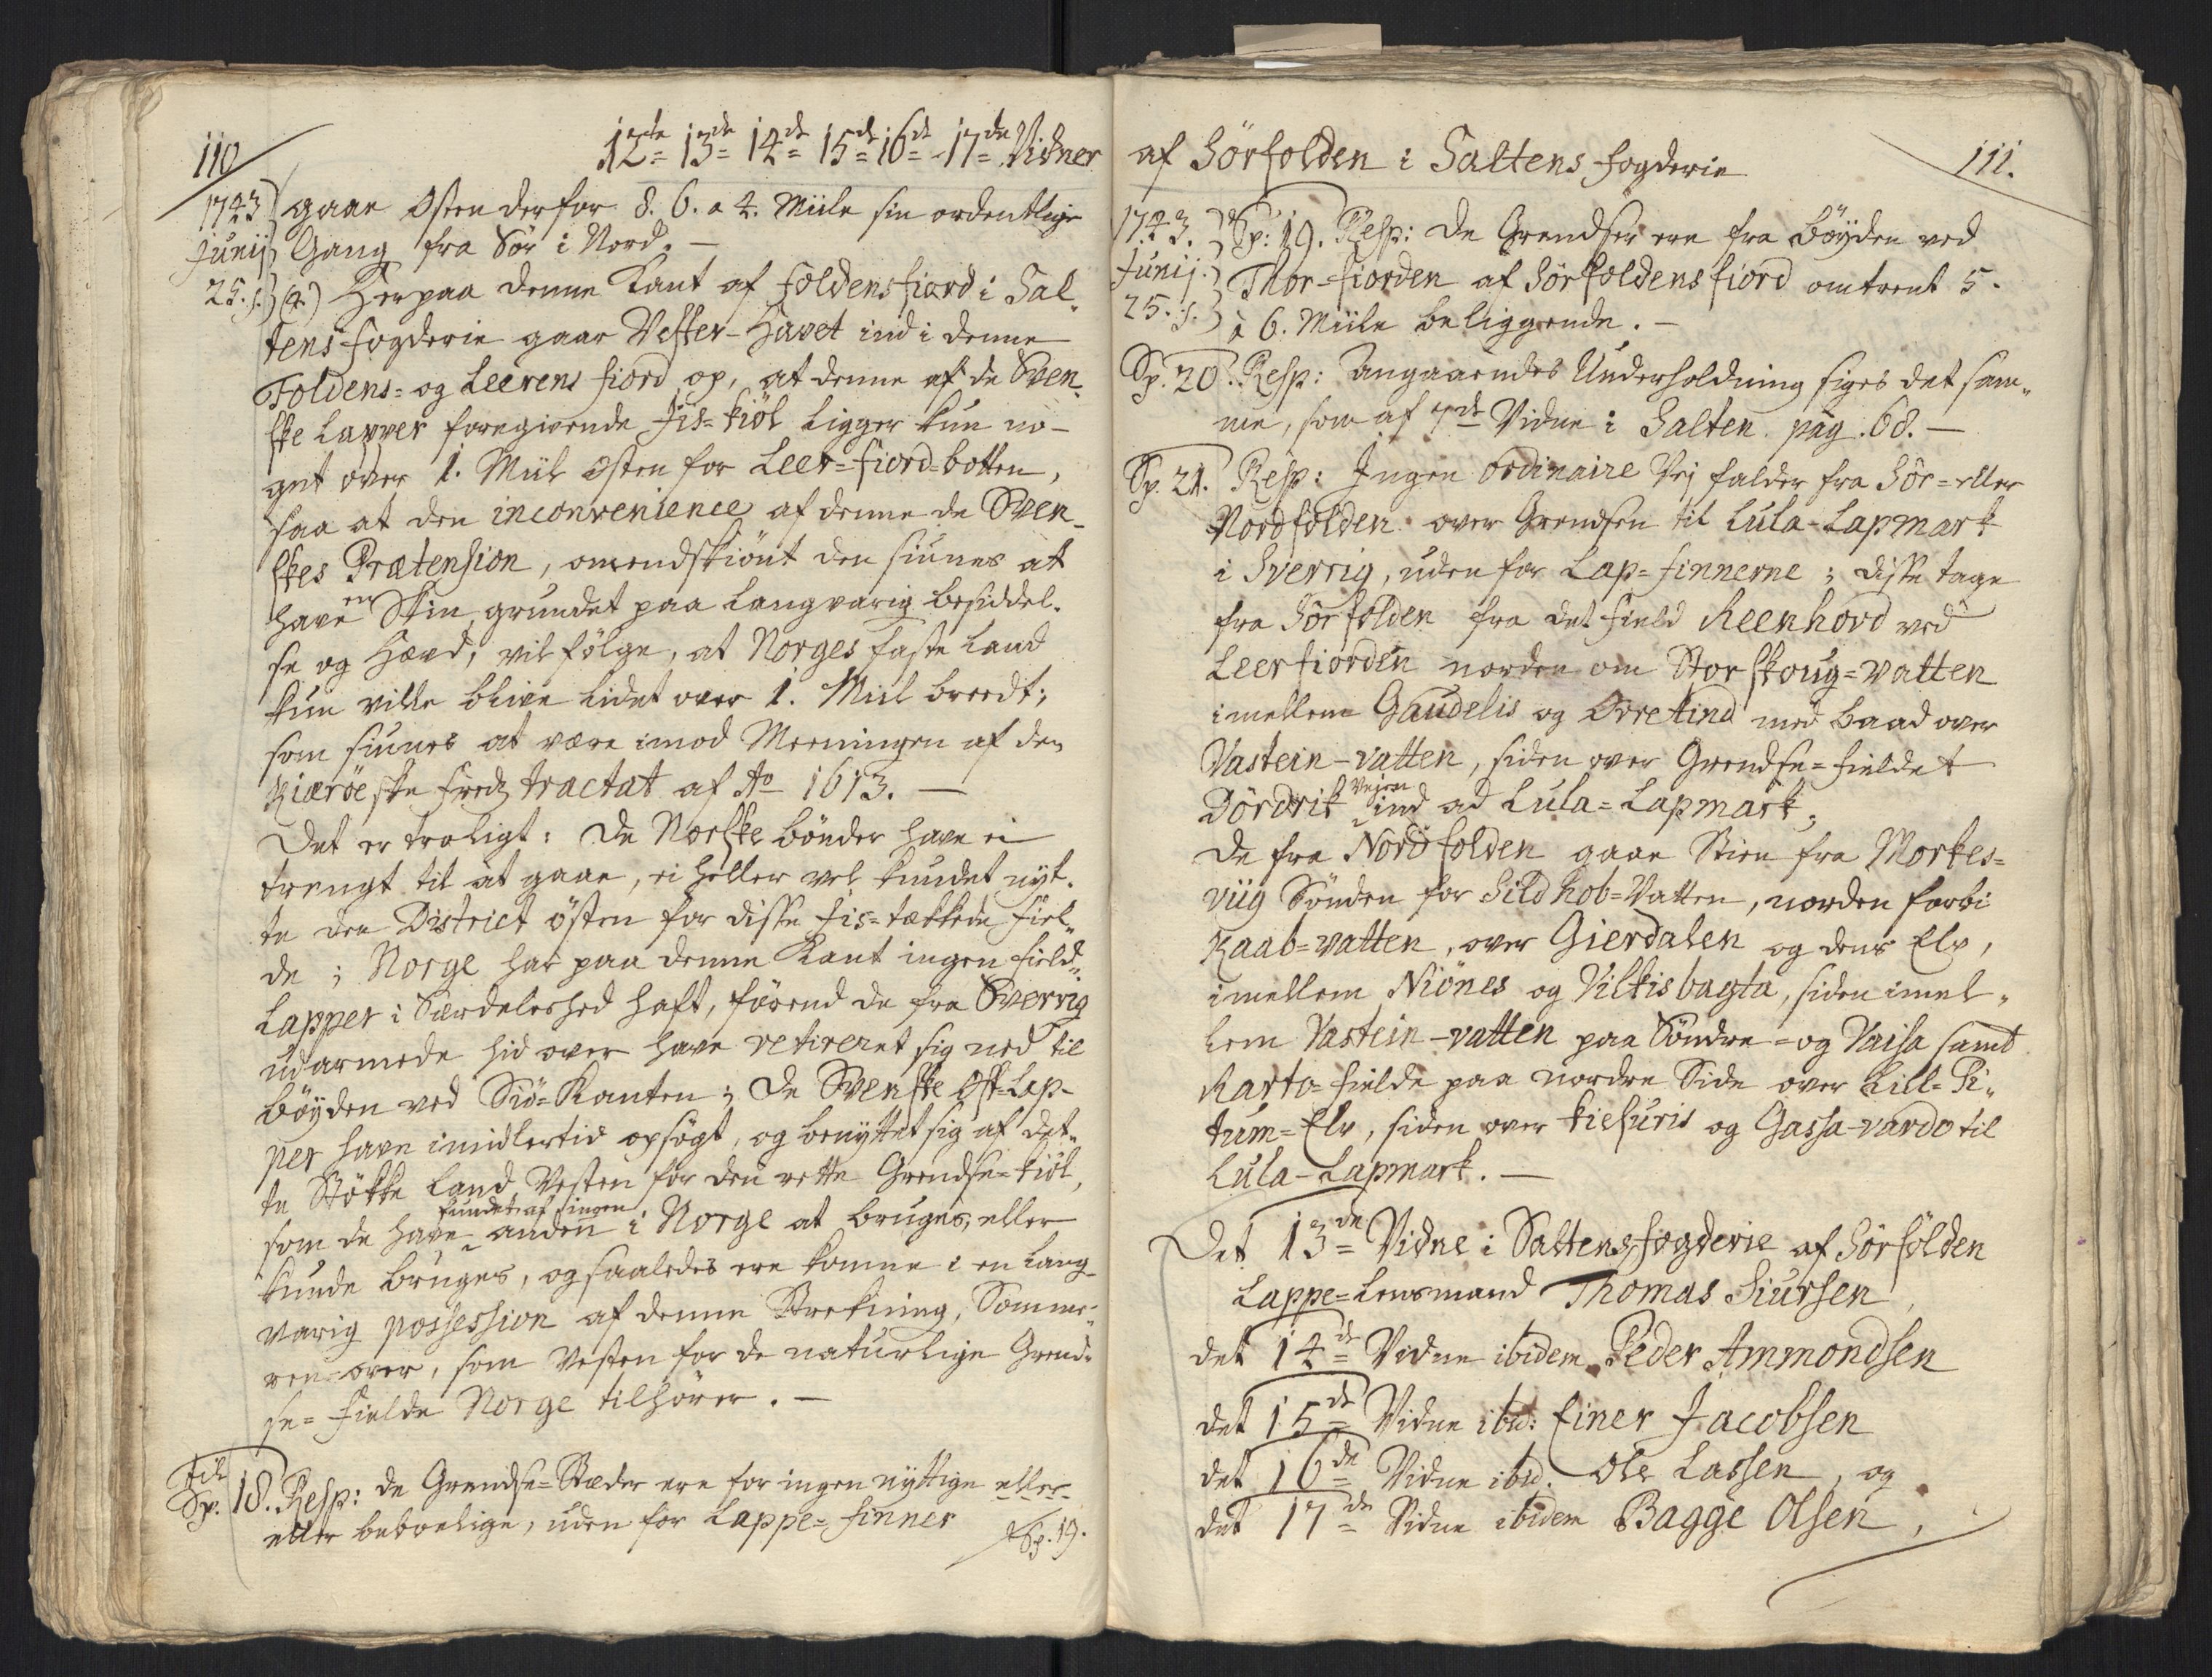 110
12te 13de 14de 15de 16de 17de Vidner
1743
Junij
25. s.
gaar Østen derfor 8. 6. a 4. Miile sin ordentlige
Gang fra Sør i Nord. —
(4.) Her paa denne Kant af Foldens fiord i Sal-
tens fogderie gaar Vester-Havet ind i denne
Foldens- og Leerens fiord op, at denne af de Sven-
ske Lapper foregivende Jis-kiøl ligger kun no-
get over 1. Miil østen for Leer-fiord-botten,
saa at den inconvenience af denne de Sven-
skes Prætension, omendskiønt den siunes at
have en Skin grundet paa langvarig besiddel-
se og Hævd, vil følge, at Norges faste Land
kun ville blive lidet over 1. Miil breedt;
som siunes at være imod Meeningen af den
Kiærøeske Freds tractat af Ao 1613. —
Det er troligt: De Norske bønder have ei
trængt til at gaae, ei heller vel kundet nyt-
te den District østen for disse Jis-tækkede Fiel-
de; Norge har paa denne Kant ingen Field-
Lapper i Særdeleshed haft, førend de fra Sverrig
udarmede hid over have retireret sig ned til
bøyden ved Siø-Kanten; De Svenske Øst-Lap-
per have imidlertid opsøgt, og benyttet sig af det-
te Støkke Land Vesten for den rette Grendse-kiøl,
som de have fundet af ingen anden i Norge at bruges, eller
kunde bruges, og saaledes ere komne i en lang-
varig possession af denne Strekning, Somme-
ren over, som Vesten for de naturlige Grend-
se-Fielde Norge tilhører. —
Til
Sp. 18. Resp: de Grendse-Stæder ere for ingen nyttige eller
eller beboelige, uden for Lappe-Finner
Sp. 19.
af Sørfolden i Saltens fogderie
111.
1743.
Junij.
25. s.
Sp: 19. Resp: De Grendser ere fra bøyden ved
Thor-fiorden af Sørfoldens fiord omtrent 5.
à 6. Miile beliggende. —
Sp. 20. Resp: Angaaendes Underholdning siges det sam-
me, som af 7de Vidne i Salten. pag. 68. —
Sp. 21. Resp: Ingen ordinaire Vej falder fra Sør- eller
Nordfolden over Grendsen til Lula-Lapmark
i Sverrig, uden for Lap-finnerne; disse tage
fra Sørfolden fra det field Reenhovd ved
Leerfiorden norden om Storskoug-vatten
imellem Gaudelis og Orretind med Baad over
Vastein-vatten, siden over Grendse-fieldet
Dördrik Vejen ind ad Lula-Lapmark;
De fra Nordfolden gaae Stien fra Morkes-
viig Sønden for Sildhob-Vatten, norden forbi
Kaab-vatten, over Gierdalen og dens Elv,
imellem Niönes og Vilkisbagta, siden imel-
lem Vastein-vatten paa Søndre- og Vaisa samt
Rarto-fielde paa nordre Side over Lill-Pi-
tum-Elv, siden over Kiesuris og Gassa-vardo til
Lula-Lapmark. —
Det 13de Vidne i Saltens fogderie af Sørfolden
Lappe-Lensmand Thomas Siursen,
det 14de Vidne ibidem Peder Ammondsen
det 15de Vidne ibid: Einer Jacobsen
det 16de Vidne ibid. Ole Lassen, og
det 17de Vidne ibidem Bagge Olsen,